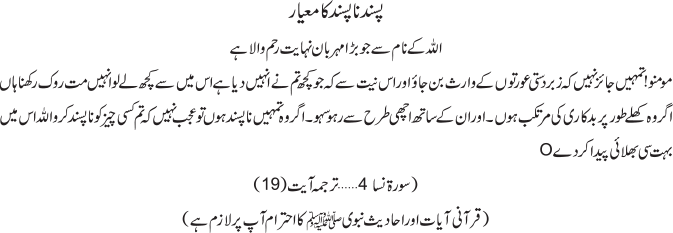 پسند ناپسند کا معیار
اللہ کے نام سے جو بڑا مہربان نہایت رحم والا ہے
مومنو! تمہیں جائز نہیں کہ زبردستی عورتوں کے وارث بن جاؤ اور اس نیت سے کہ جو کچھ تم نے انہیں دیا ہے اس میں سے کچھ لے لو انہیں مت روک رکھنا ہاں
اگر وہ کھلے طور پر بدکاری کی مرتکب ہوں۔ اور ان کے ساتھ اچھی طرح سے رہو سہو۔ اگر وہ تمہیں ناپسند ہوں تو عجب نہیں کہ تم کسی چیز کو ناپسند کرو اللہ اس میں
بہت سی بھلائی پیدا کر دے O
(سورۃ نسا 4......ترجمہ آیت (19)
(قرآنی آیات اور احادیث نبوی ﷺ کا احترام آپ پر لازم ہے)